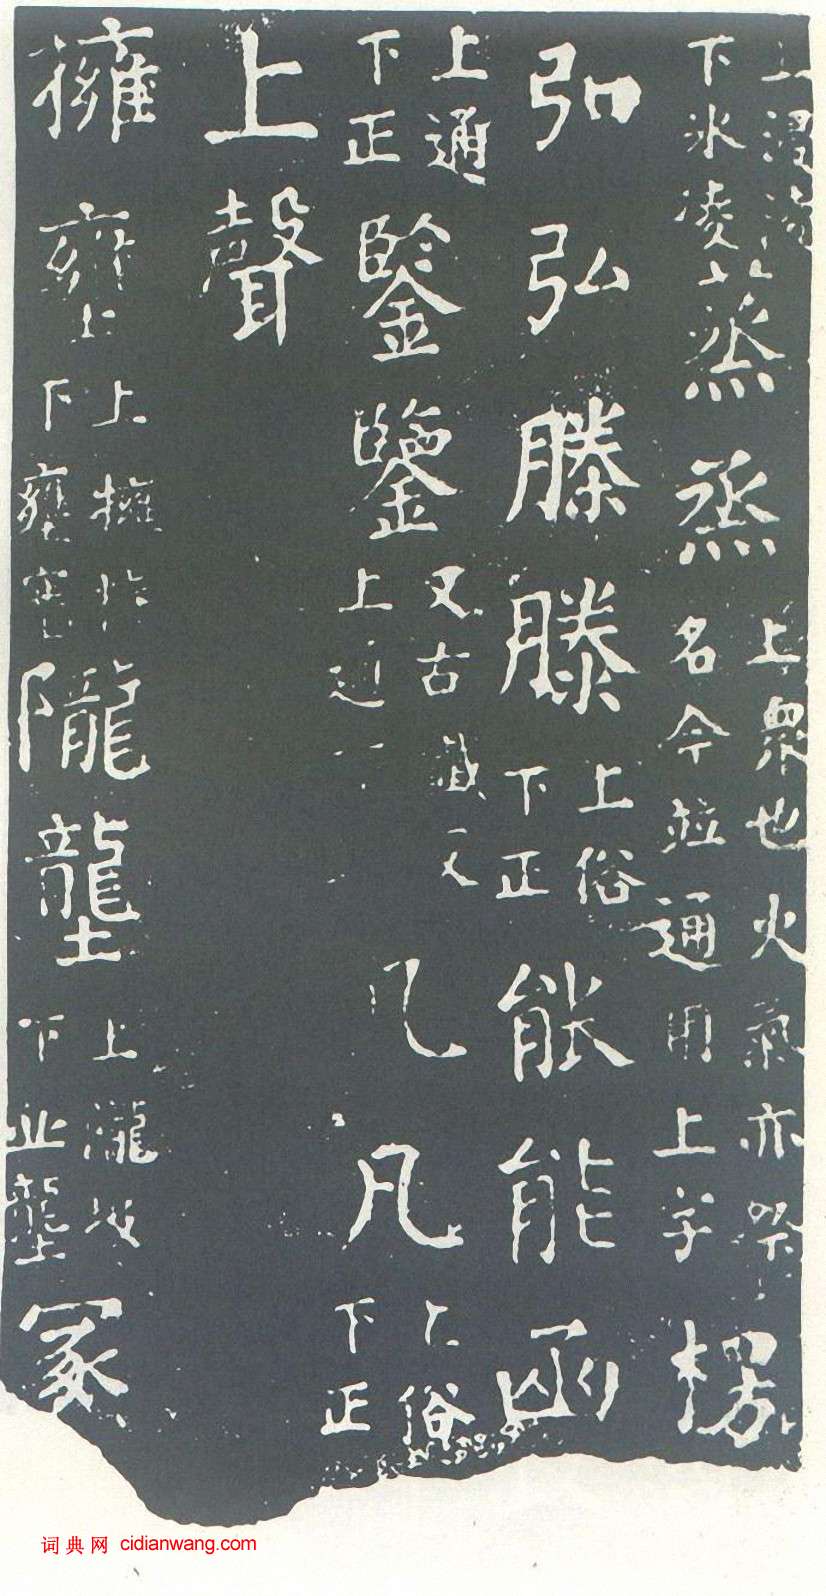 上下冰凌蒸烝上衆也火氣亦祭名今並通用上字楞
㢬弘滕滕上俗下正䏻能函
上通下正鍳鑒又古文上通下凢凡上俗下正
上聲
擁壅上擁下壅塞隴壟上下丘壟冢
词典网 cidianwang.com